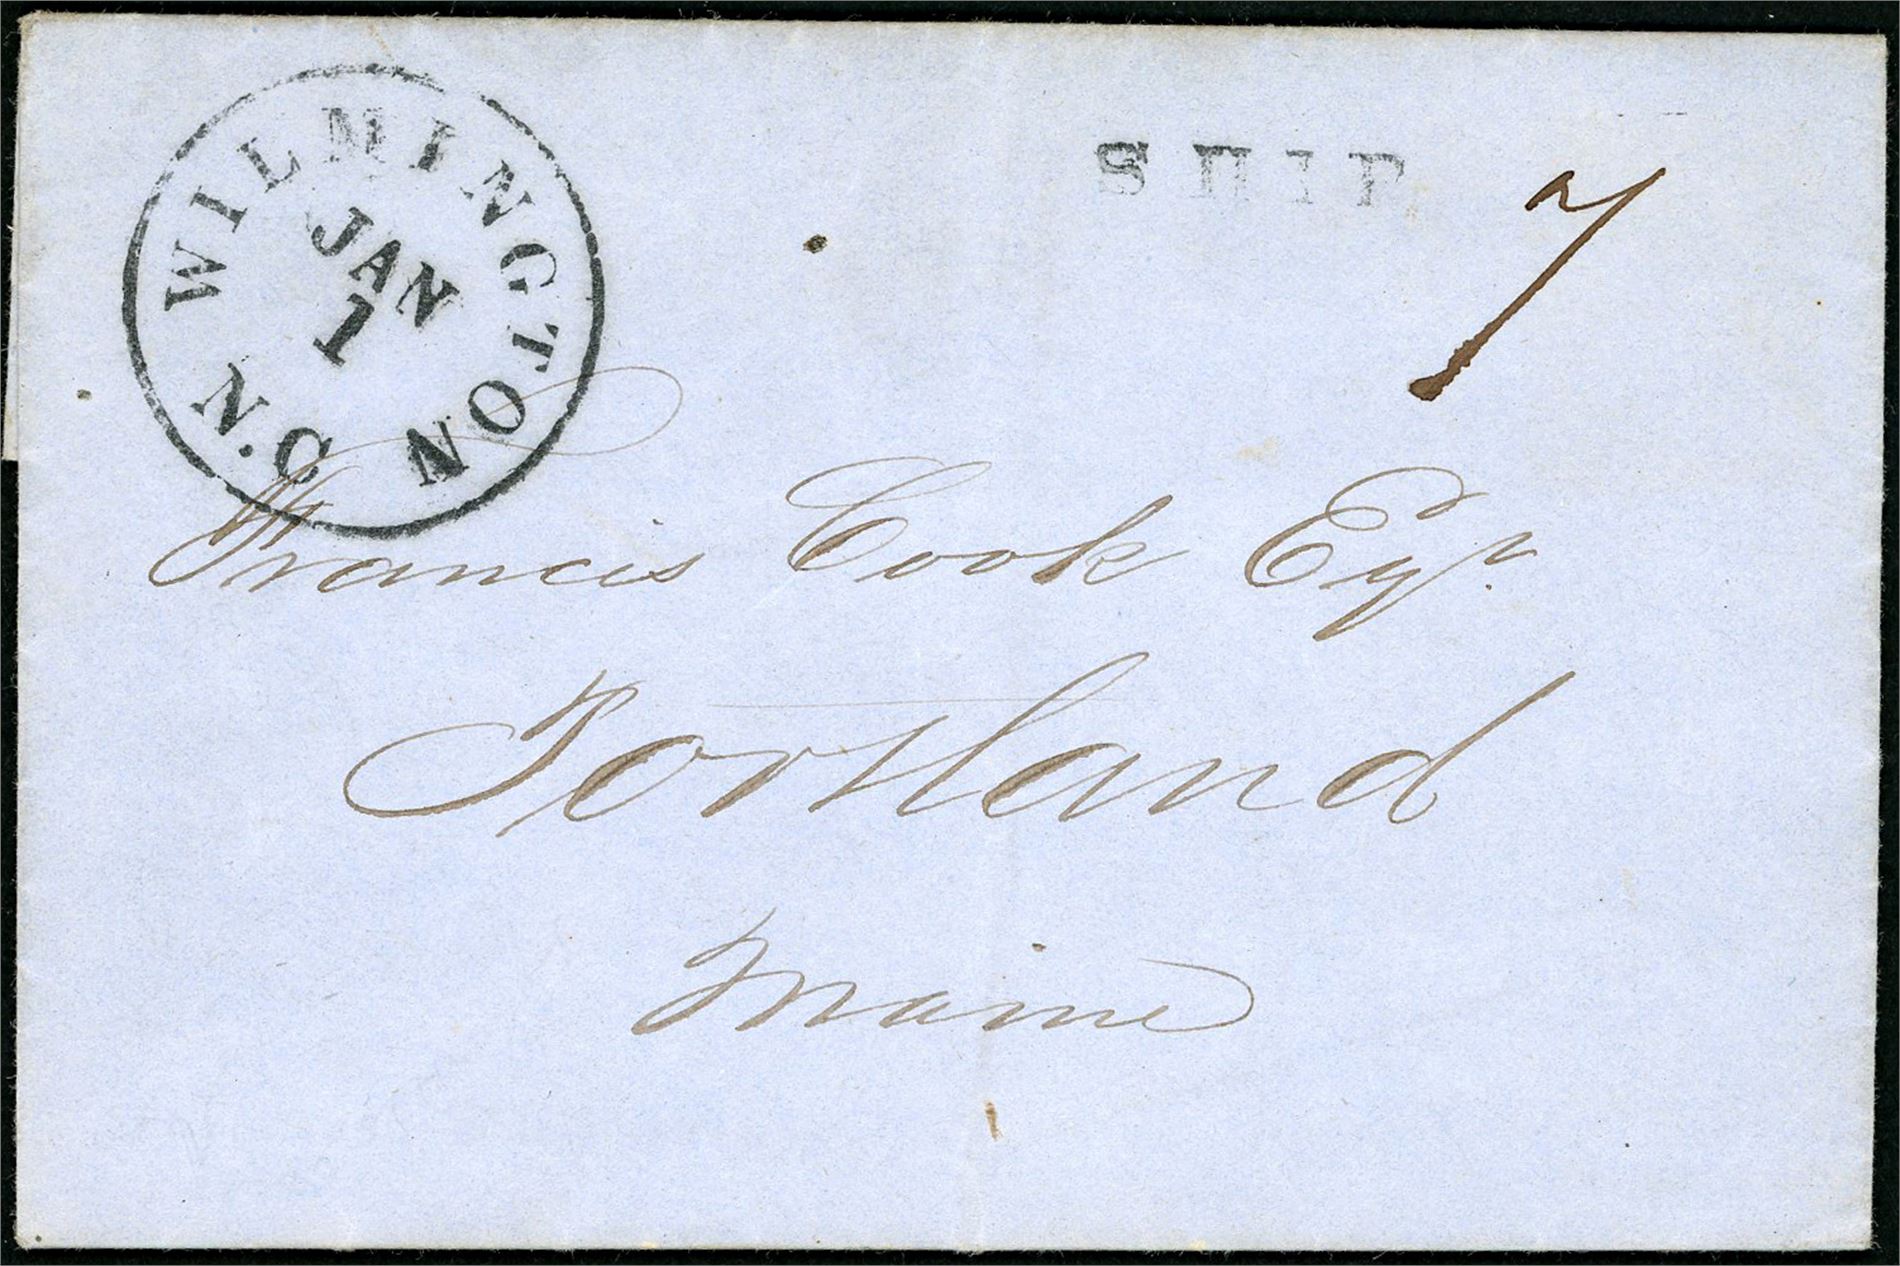 WILMINGTON N.C
JAN
1
SHIP
7
Francis Cook Esqr.
Portland
Maine